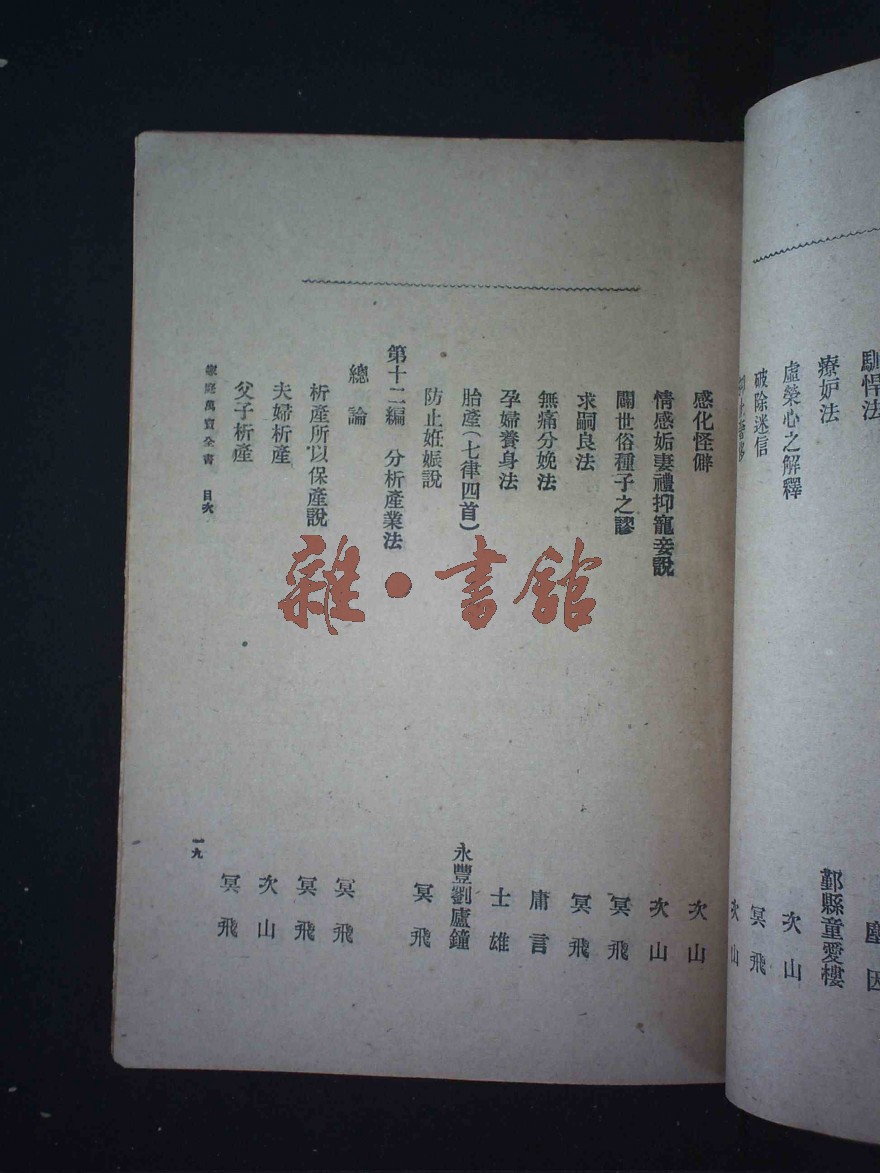 馴悍法
塵因
療妒法
鄞縣童愛樓
虛榮心之解釋
次山
破除迷信
冥飛
次山
感化怪僻
次山
情感妬妻禮抑寵妾說
次山
闢世俗種子之謬
冥飛
求嗣良法
冥飛
無痛分娩法
庸言
孕婦養身法
士雄
胎產(七律四首)
永豐劉廬鐘
防止姙娠說
冥飛
第十二編 分析產業法
總論
冥飛
析產所以保產說
冥飛
夫婦析產
次山
父子析產
冥飛
家庭萬寶全書 目次
一九
雜·書館